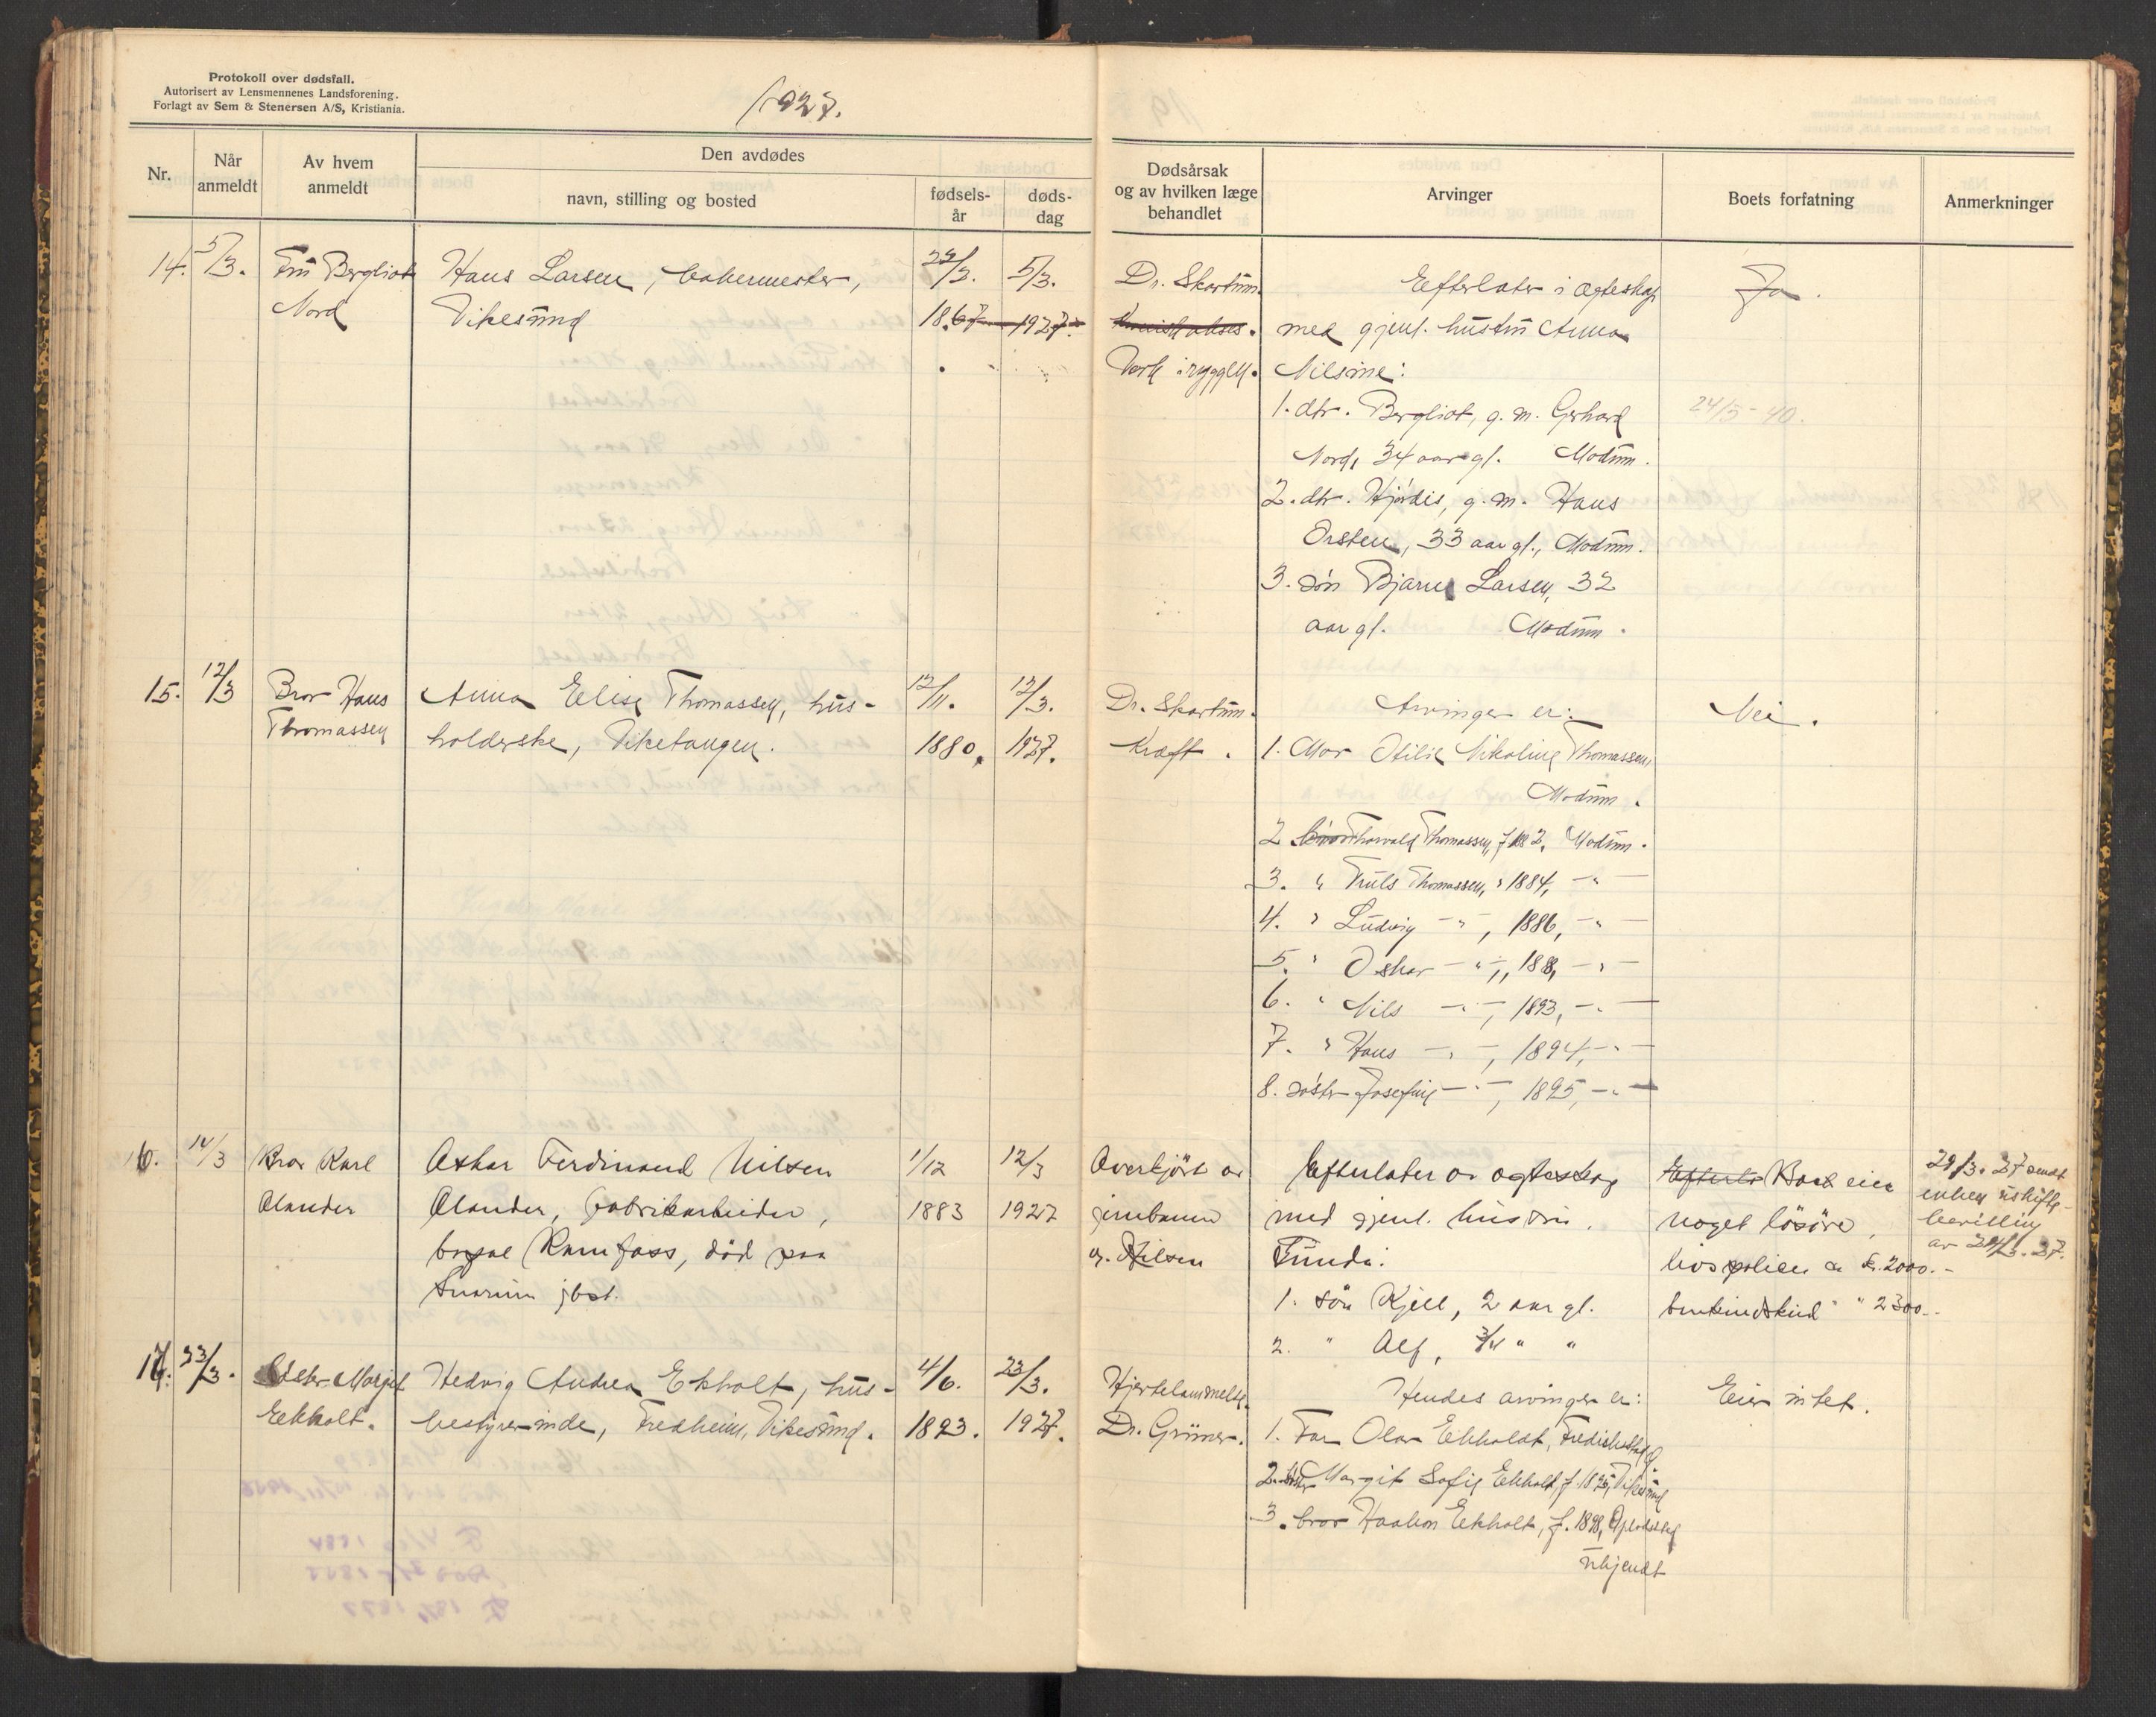 Protokoll over dødsfall.
Autorisert av Lensmennenes Landsforening.
Forlagt av Sem & Stenersen A/S, Kristiania.
1927.
Nr.
Når anmeldt
Av hvem anmeldt
Den avdødes
navn, stilling og bosted
fødsels-år
døds-dag
Dødsårsak og av hvilken læge behandlet
Arvinger
Boets forfatning
Anmerkninger
14. 5/3. Fru Bergliot Hans Larsen, bakermester, 5/3. Dr. Skartum. Efterlater i ægteskap Ja.
Nord Vikesund 1867 1927. med gjenl. hustru Anna
Verk i ryggen. Nilsine:
1. dtr. Bergliot, g. m. Gerhard 24/5-40.
Nord, 34 aar gl. Modum.
2. dtr. Hjördis, g. m. Hans
Orsten, 33 aar gl., Modum.
3. sön Bjarne Larsen, 32
aar gl. Modum.
15. 12/3 Bror Hans Anna Elise Thomassen, hus- 12/11. 12/3. Dr. Skartum. Arvinger er: Nei.
Thomassen holderske, Viketangen. 1880. 1927. Kræft. 1. Mor Otilie Nikoline Thomassen,
Modum.
2 Thorvald Thomassen, f. 1882, Modum.
3. " Truls Thomassen, " 1884, - " -
4. " Ludvig - " -, 1886, - " -
5. " Oskar - " -, 188, - " -
6. " Nils - " -, 1893, - " -
7. " Hans - " -, 1894, - " -
8. söster Josefine - " -, 1895, - " -
16. 14/3 Bror Karl Oskar Ferdinand Nilsen 1/12 12/3 Overkjört av Efterlater av ægteskap Boet eier 29/3. 27 sendt
Olander Olander, fabrikarbeider, 1883 1927 jernbanen med gjenl. hustru. noget lösöre, enken uskifte-
bopæl Ramfoss, död paa Dr. Nilsen Tunda: livspolice a kr. 2000.- bevilling
Snarum jbst. 1. sön Kjell, 2 aar gl. " 2300.- av 27.
2. " Alf, 3/4 " "
17. 23/3. Söster Margit Hedvig Andrea Ekholt, hus- 4/6. 23/3. Hjertelammelse. Hendes arvinger er: Eier intet.
Ekholt. bestyrerinde, Fredheim, Vikesund. 1893. 1927. Dr. Grüner. 1. Far Olav Ekholdt, Fredrikstad
2. söster Margit Sofie Ekholt, f. 1895, Vikesund
3. bror Haakon Ekholt, f. 1898, Opholdssted
ukjendt